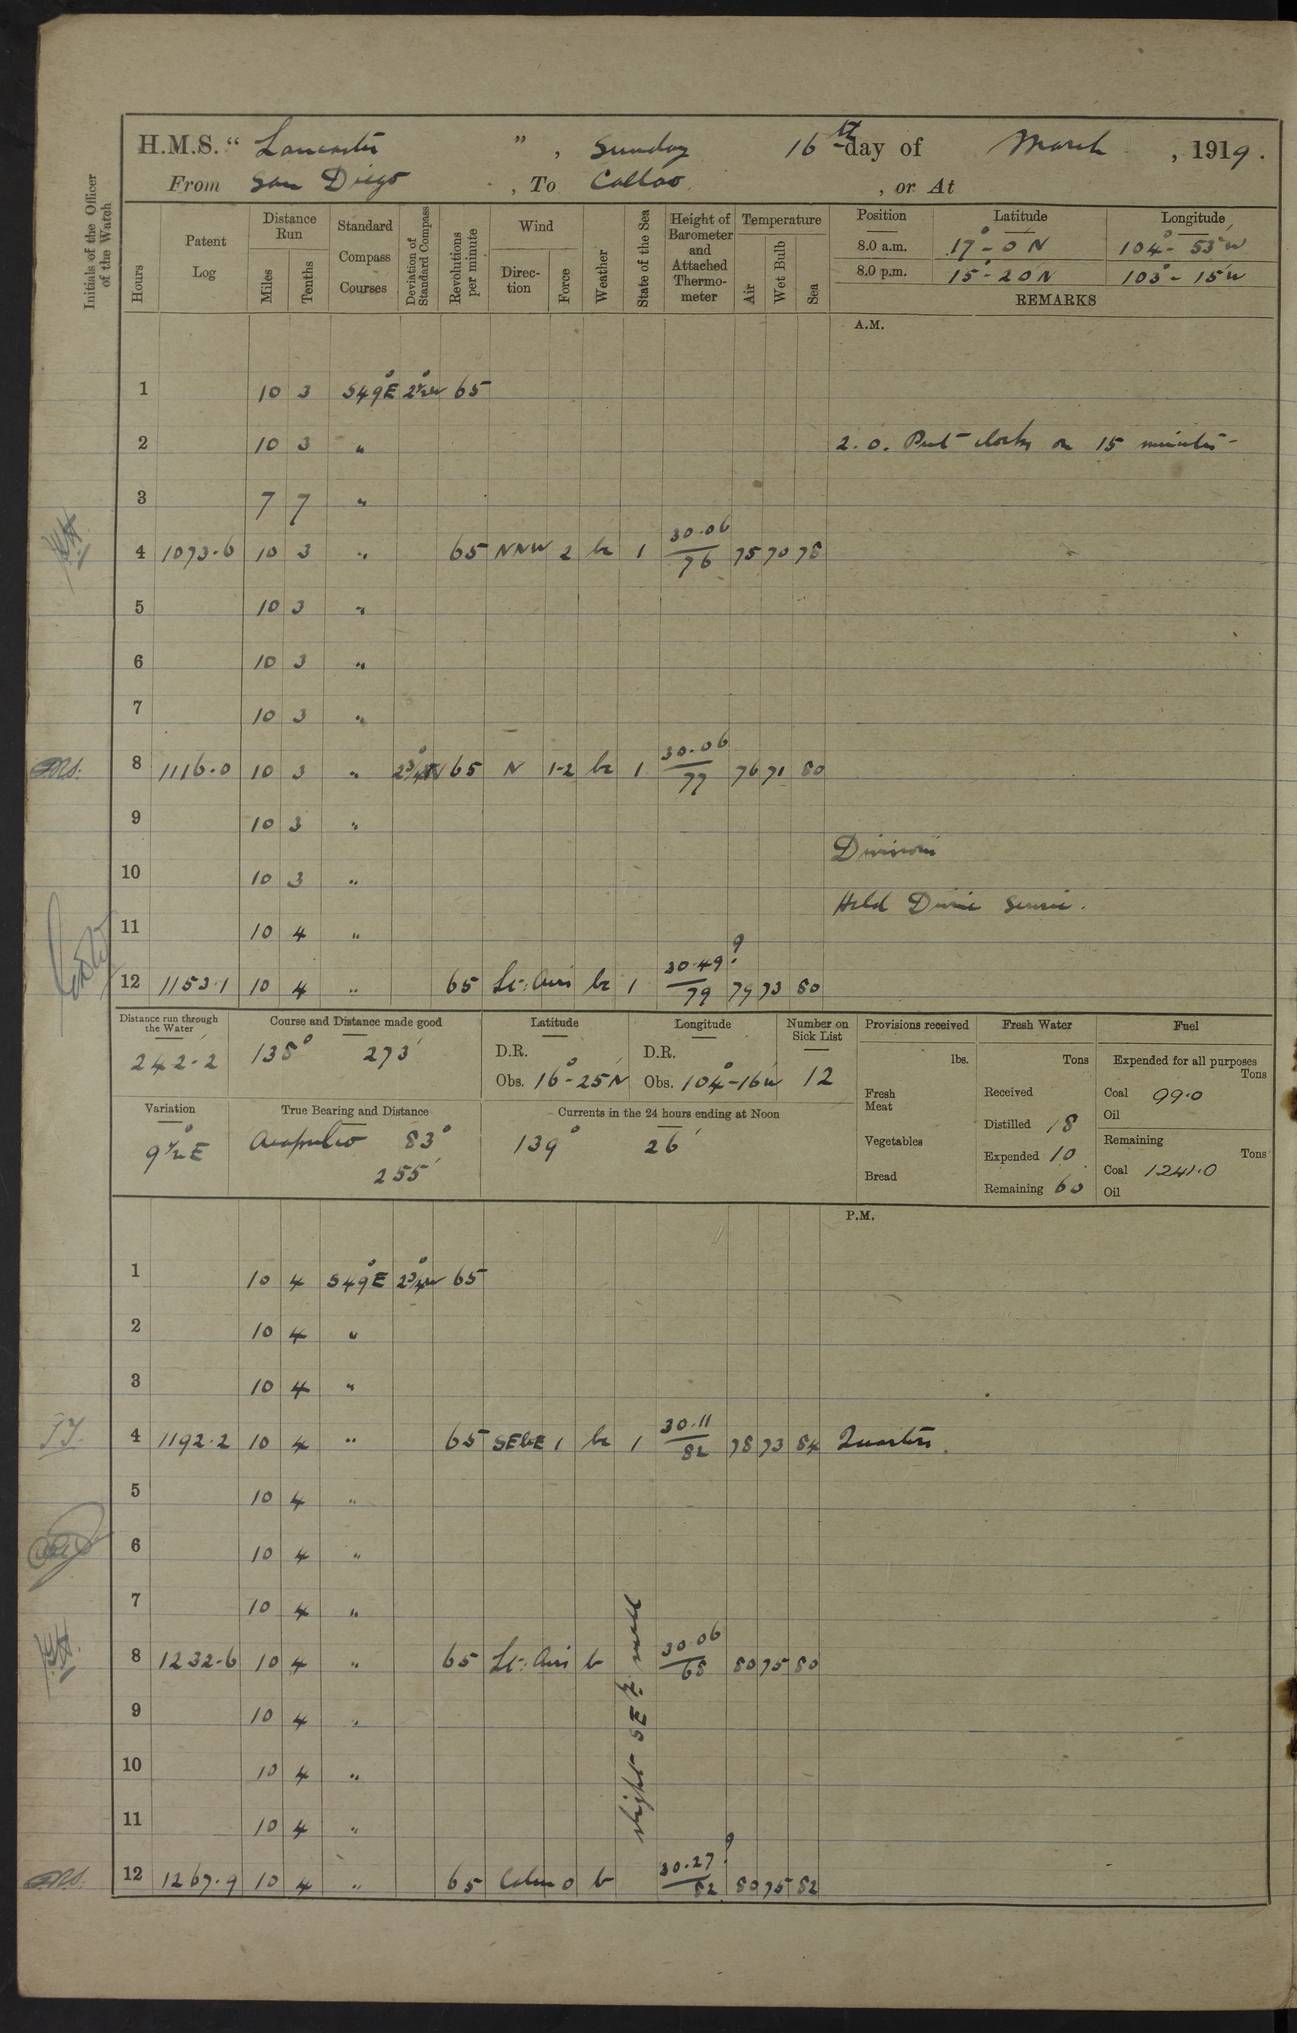 H.M.S. “ Lancaster ” , Sunday 16th day of March , 1919.
From San Diego , To Callao , or At
Initials of the Officer of the Watch
Hours
Patent Log
Distance Run
Miles
Tenths
Standard Compass Courses
Deviation of Standard Compass
Revolutions per minute
Wind
Direction
Force
Weather
State of the Sea
Height of Barometer and Attached Thermometer
Temperature
Air
Wet Bulb
Sea
Position Latitude Longitude
8.0 a.m. 17° - 0' N 104° - 53' W
8.0 p.m. 15° - 20' N 103° - 15' W
REMARKS
A.M.
1 10 3 S49°E 2½°W 65
2 10 3 " 2.0. Put clocks on 15 minutes -
3 7 7 "
4 1073.6 10 3 " 65 NNW 2 bc 1 30.06/76 75 70 78
5 10 3 "
6 10 3 "
7 10 3 "
8 1116.0 10 3 " 2¾°W 65 N 1-2 bc 1 30.06/77 76 71 80
9 10 3 "
Divisions
10 10 3 "
Held Divine Service.
11 10 4 "
12 1153.1 10 4 " 65 Lt: Airs bc 1 30.49?/79 79 73 80
Distance run through the Water
242.2
Course and Distance made good
138° 273'
Latitude
D.R.
Obs. 16° - 25' N
Longitude
D.R.
Obs. 104° - 16' W
Number on Sick List
12
Provisions received
lbs.
Fresh Meat
Vegetables
Bread
Fresh Water
Tons
Received
Distilled 18
Expended 10
Remaining 60
Fuel
Expended for all purposes
Tons
Coal 99.0
Oil
Remaining
Tons
Coal 1241.0
Oil
Variation
9½°E
True Bearing and Distance
Acapulco 83°
255'
Currents in the 24 hours ending at Noon
139° 26'
P.M.
1 10 4 S49°E 2¾°W 65
2 10 4 "
3 10 4 "
4 1192.2 10 4 " 65 SEbE 1 bc 1 30.11/82 78 73 84 Quarters.
5 10 4 "
6 10 4 "
7 10 4 "
8 1232.6 10 4 " 65 Lt: Airs b 30.06/68 80 75 80
slight SEly swell
9 10 4 "
10 10 4 "
11 10 4 "
12 1267.9 10 4 " 65 Calm 0 b 30.27?/82 80 75 82